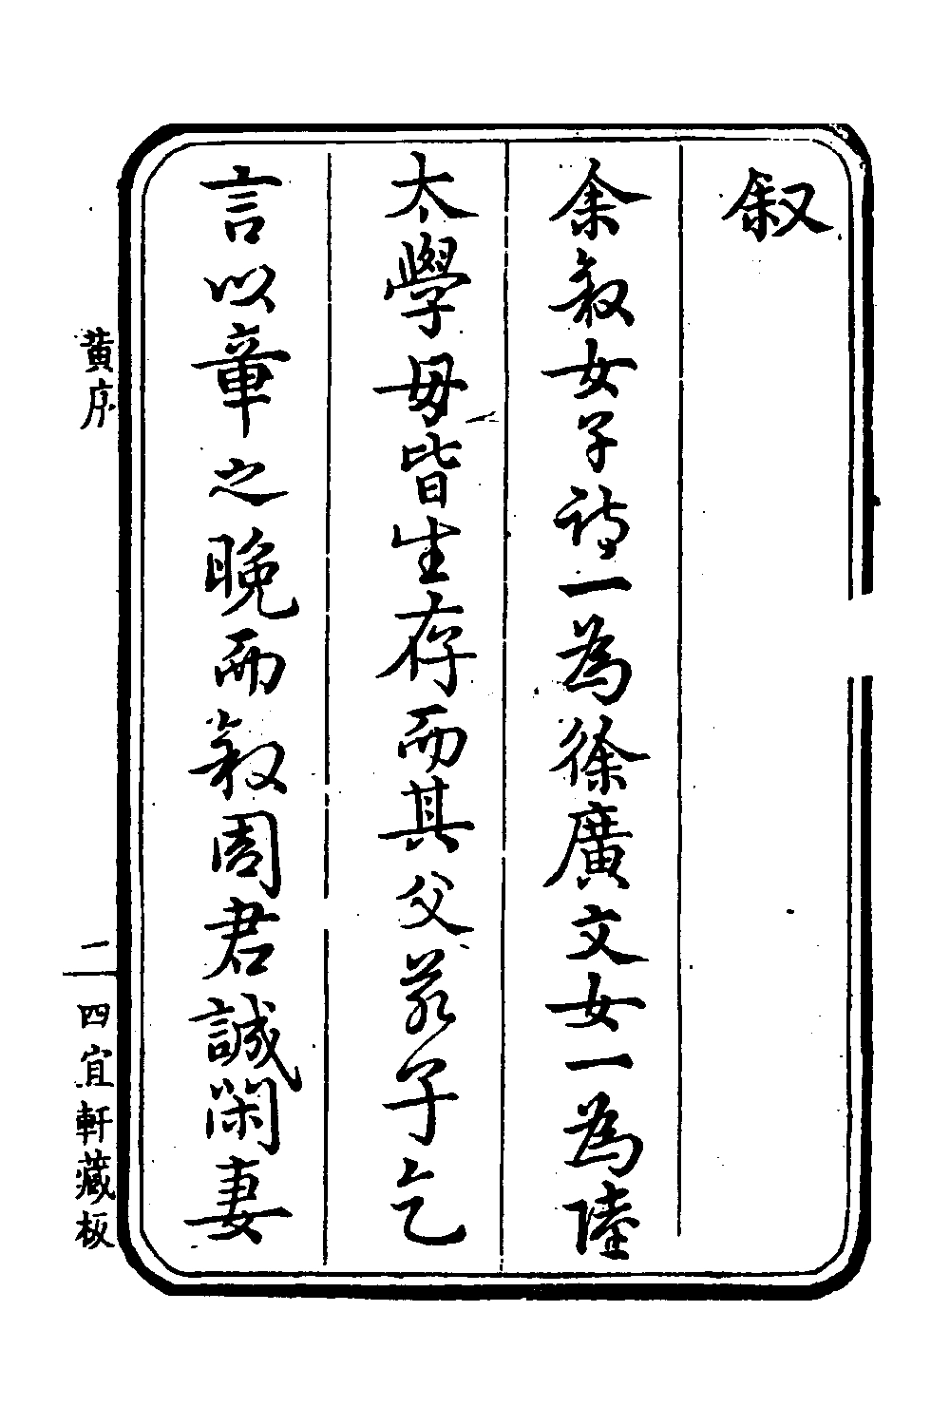 叙
余叙女子詩一為徐廣文女一為陸
太學母皆生存而其父若子乞
言以章之晚而叙周君誠閑妻
黄序
二
四宜軒藏板